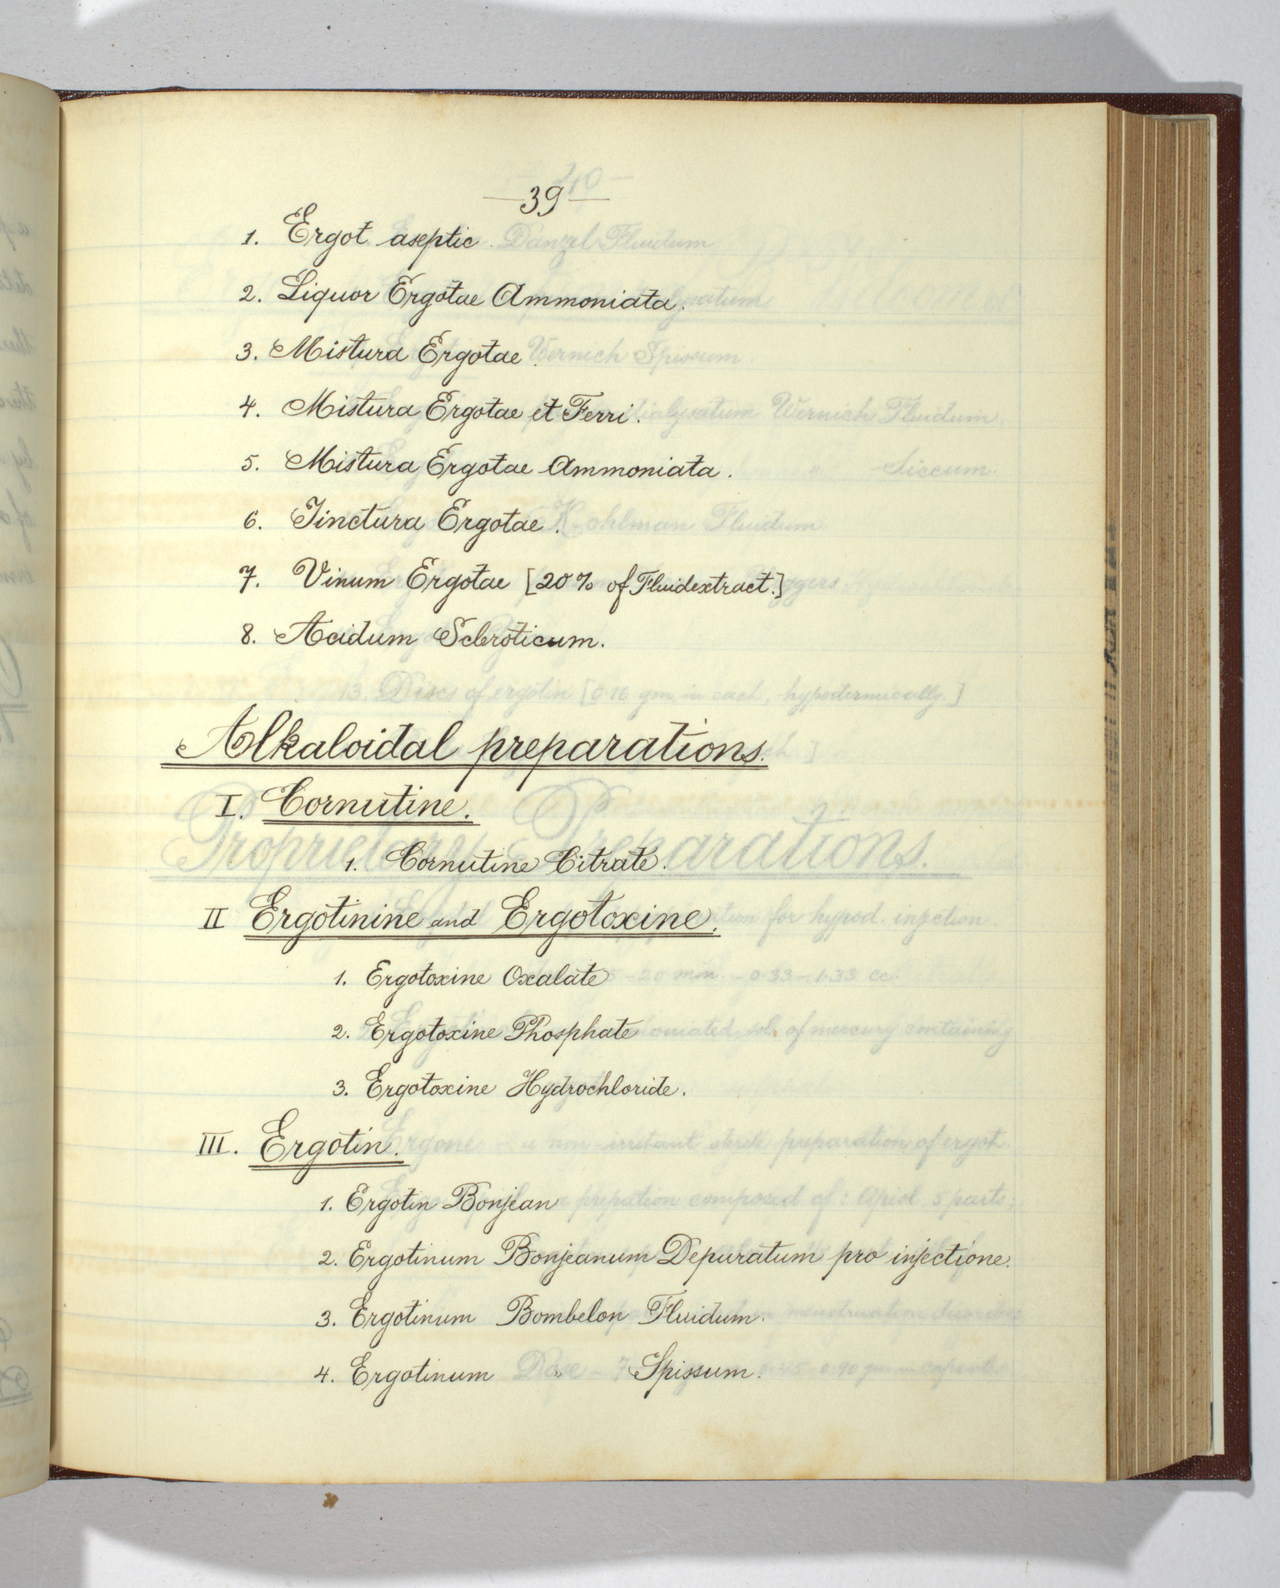 — 39 —
1. Ergot aseptic.
2. Liquor Ergotae Ammoniata.
3. Mistura Ergotae.
4. Mistura Ergotae et Ferri.
5. Mistura Ergotae Ammoniata.
6. Tinctura Ergotae.
7. Vinum Ergotae [20% of Fluidextract.]
8. Acidum Scleroticum.
Alkaloidal preparations.
I. Cornutine.
1. Cornutine Citrate.
II Ergotinine and Ergotoxine.
1. Ergotoxine Oxalate
2. Ergotoxine Phosphate
3. Ergotoxine Hydrochloride.
III. Ergotin.
1. Ergotin Bonjean
2. Ergotinum Bonjeanum Depuratum pro injectione.
3. Ergotinum Bombelon Fluidum.
4. Ergotinum " Spissum.